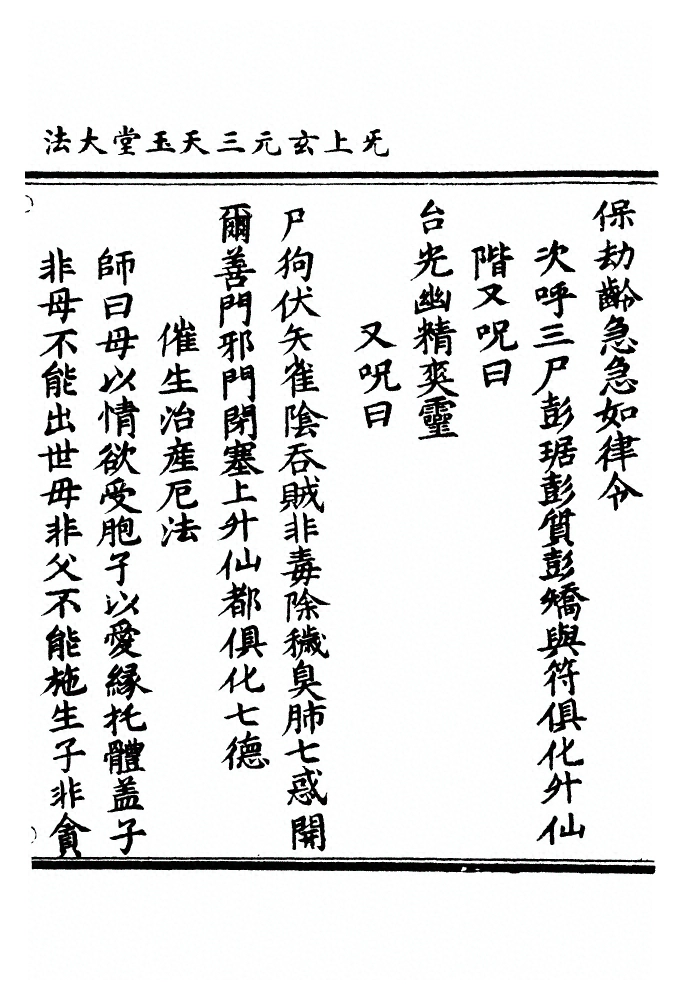 无上玄元三天玉堂大法
保劫齡急急如律令
次呼三尸彭琚彭質彭矯與符俱化升仙
階又呪曰
台光幽精爽靈
又呪曰
尸狗伏矢雀陰吞賊非毒除穢臭肺七惑開
爾善門邪門閉塞上升仙都俱化七德
催生治產厄法
師曰母以情欲受胞子以愛緣托體蓋子
非母不能出世母非父不能施生子非貪